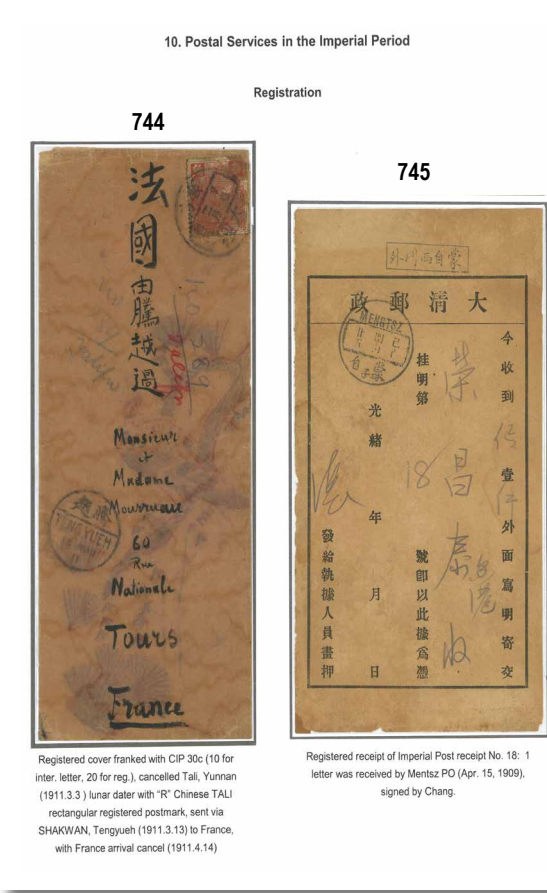 10. Postal Services in the Imperial Period
Registration
744
法國由騰越過
No 389
Talifu
Monsieur
et
Madame
60
Rue
Nationale
Tours
France
TENGYUEH
Registered cover franked with CIP 30c (10 for
inter. letter, 20 for reg.), cancelled Tali, Yunnan
(1911.3.3 ) lunar dater with “R” Chinese TALI
rectangular registered postmark, sent via
SHAKWAN, Tengyueh (1911.3.13) to France,
with France arrival cancel (1911.4.14)
745
大清郵政
MENGTSZ
今收到 壹 外面寫明寄交
榮昌泰
掛明第 18 號卽以此據爲憑
光緒 年 月 日
發給執據人員畫押
Registered receipt of Imperial Post receipt No. 18: 1
letter was received by Mentsz PO (Apr. 15, 1909),
signed by Chang.